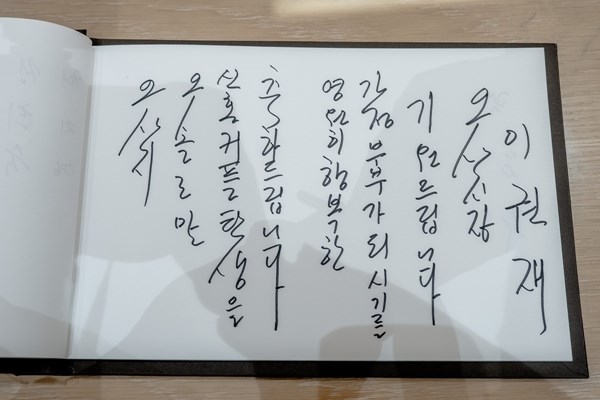 오산시
신혼커플탄생을
축하드립니다
영원히 행복한
가정 부부가 되시기를
기원드립니다
오산시장
이권재